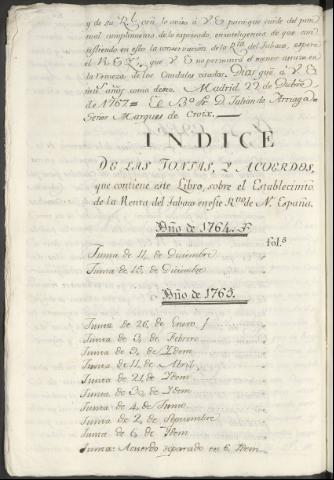 y de su Rl. orn. lo aviso á V. E. para que cuide del puntual
cumplimiento de lo expresado, en inteligencia de que consistiendo
en esto la conservacion de la Rta. del Tabaco, espera
el REY, que V. E. no permitirá el menor atraso en
la remesa de los Caudales citados. Dios gue. á V. E.
ms. años como deseo. Madrid 22 de Dizbre.
de 1767 = El Bo. Fr. D. Julian de Arriaga =
Señor Marques de Croix.
INDICE
DE LAS JUNTAS, Y ACUERDOS,
que contiene este Libro, sobre el Establecimto.
de la Renta del Tabaco en este Rno. de N. España.
Año de 1764.
fols.
Junta de 11 de Diciembre
Junta de 15 de Diciembre
Año de 1765.
Junta de 26 de Enero
Junta de 5 de Febrero
Junta de 9 de Ydem
Junta de 11 de Abril
Junta de 21 de Ydem
Junta de 30 de Ydem
Junta de 4 de Junio
Junta de 2 de Septiembre
Junta de 6 de Ydem
Junta: Acuerdo separado en 6 Ydem